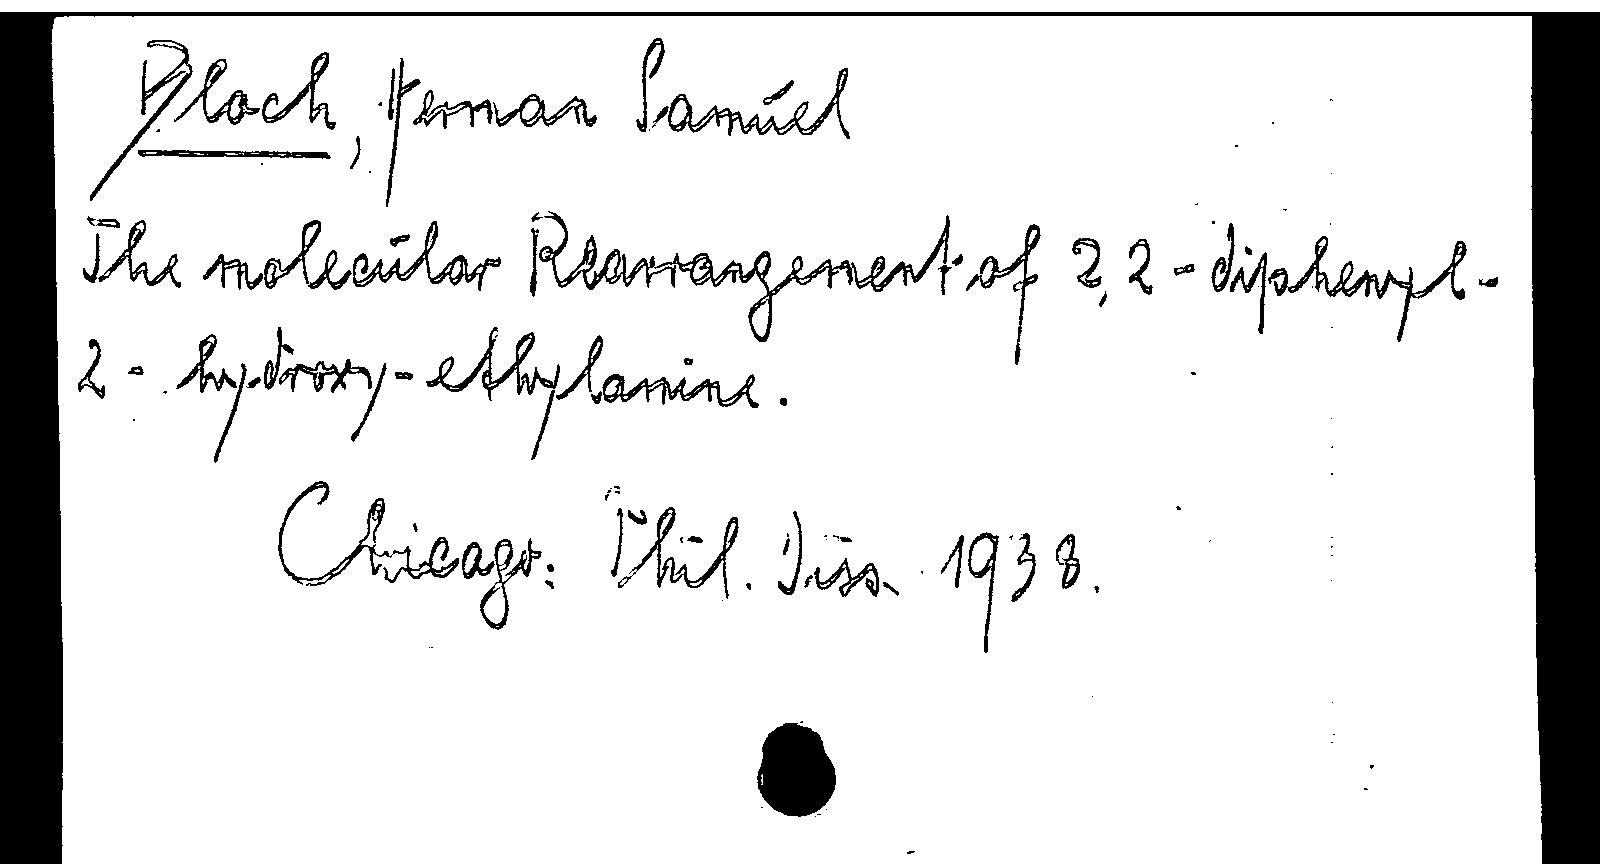 Bloch, Herman Samuel
The molecular Rearrangement of 2,2-diphenyl-
2-hydroxy-ethylamine.
Chicago: Phil. Diss. 1938.